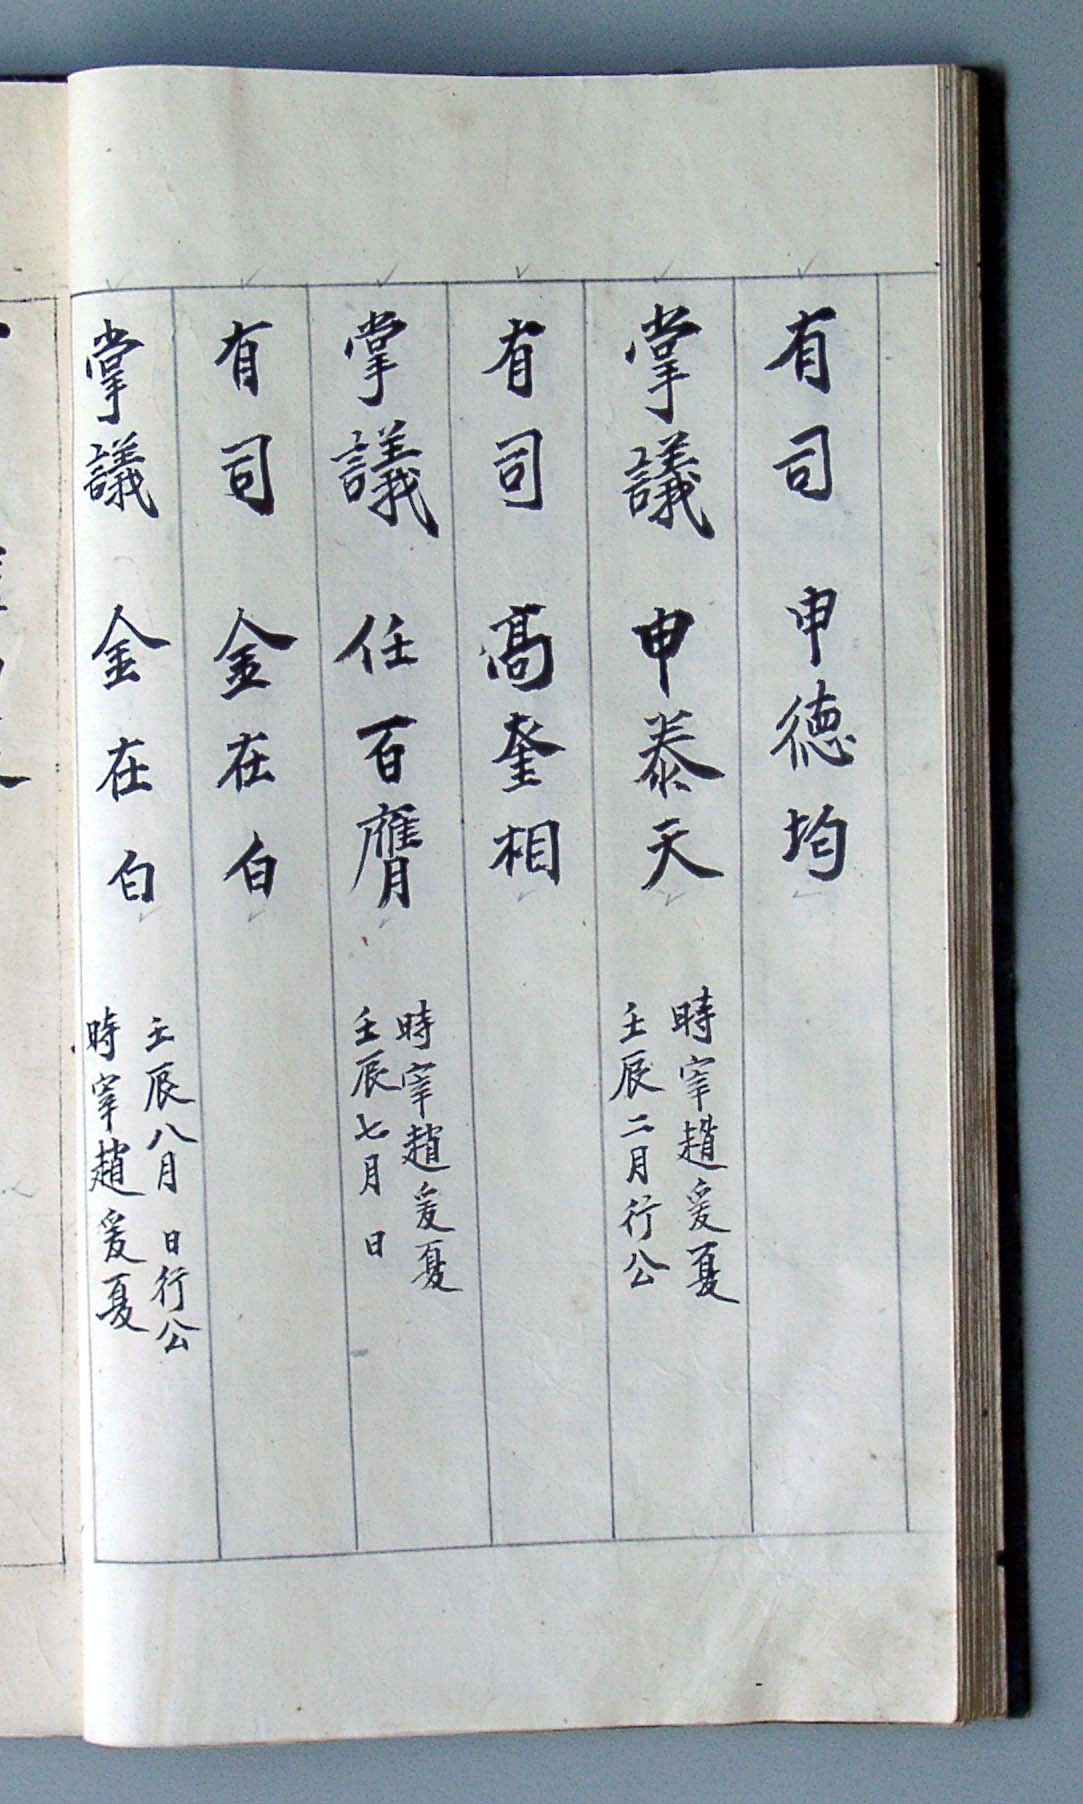 有司 申德均
掌議 申泰天
時宰趙爰夏
壬辰二月行公
有司 高奎相
掌議 任百膺
時宰趙爰夏
壬辰七月 日
有司 金在白
掌議 金在白
壬辰八月 日行公
時宰趙爰夏